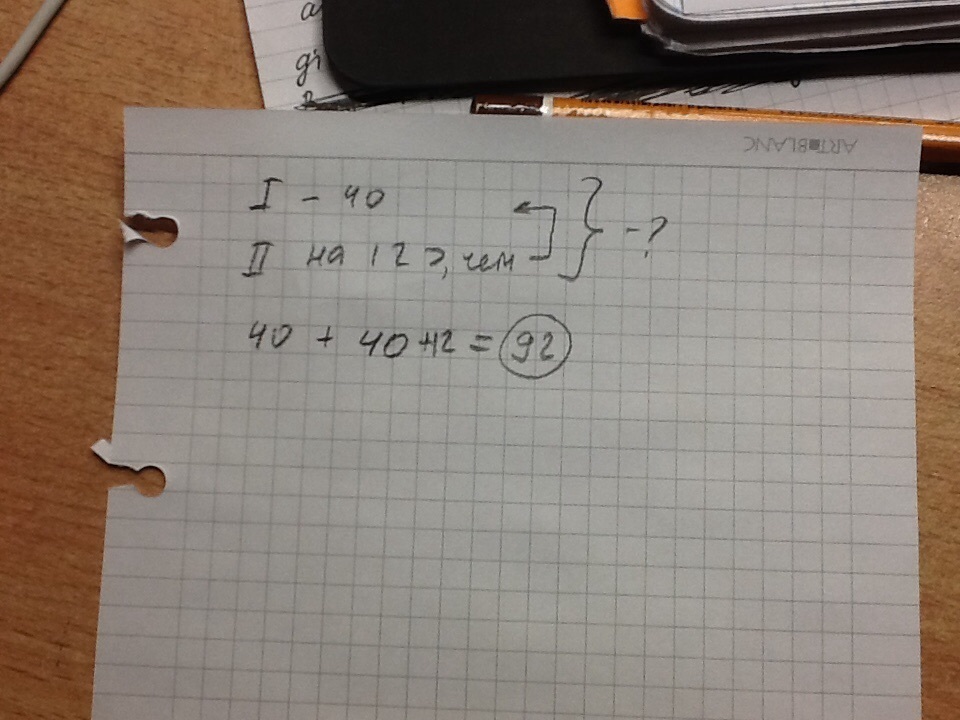 ART BLANC
I - 40
II на 12 >, чем
} - ?
40 + 40 + 12 = 92